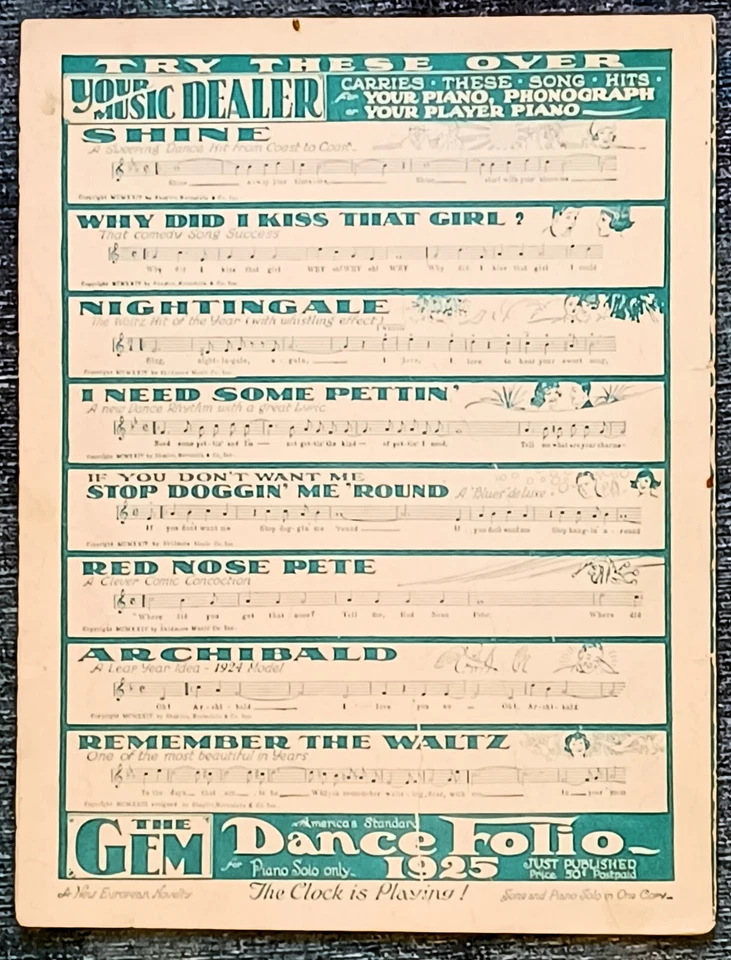 TRY THESE OVER
YOUR MUSIC DEALER
CARRIES · THESE · SONG · HITS ·
for YOUR PIANO, PHONOGRAPH
or YOUR PLAYER PIANO
SHINE
A Sweeping Dance Hit from Coast to Coast
Shine away your Shine start with your
Copyright MCMXXIV by Shapiro, Bernstein & Co. Inc.
WHY DID I KISS THAT GIRL ?
That comedy Song Success
Why did I kiss that girl WHY oh! WHY oh! WHY Why did I kiss that girl I could
Copyright MCMXXIV by Shapiro, Bernstein & Co. Inc.
NIGHTINGALE
The Waltz Hit of the Year (with whistling effect)
Sing, night-in-gale, a-gain, I love, I love to hear your sweet song,
Copyright MCMXXIV by Skidmore Music Co. Inc.
I NEED SOME PETTIN'
A new Dance Rhythm with a great Lyric
Need some pet-tin' and I'm not get-tin' the kind of pet-tin' I need, Tell me what are your charms
Copyright MCMXXIV by Shapiro, Bernstein & Co, Inc.
IF YOU DON'T WANT ME
STOP DOGGIN' ME 'ROUND
A "Blues" de luxe
If you don't want me Stop dog-gin' me 'round If you don't want me Stop hang-in' a-round
Copyright MCMXXIV by Skidmore Music Co. Inc.
RED NOSE PETE
A Clever Comic Concoction
"Where did you get that nose? Tell me, Red Nose Pete, Where did
Copyright MCMXXIV by Skidmore Music Co. Inc.
ARCHIBALD
A Leap Year Idea - 1924 Model
Oh! Ar-chi-bald I love you so Oh! Ar-chi-bald
Copyright MCMXXIV by Shapiro, Bernstein & Co. Inc.
REMEMBER THE WALTZ
One of the most beautiful in Years
In the days that
Copyright MCMXXIII assigned to Shapiro, Bernstein & Co. Inc.
THE GEM
America's Standard
Dance Folio
for Piano Solo only
1925
JUST PUBLISHED
Price 50¢ Postpaid
A New European Novelty
The Clock is Playing!
Song and Piano Solo in One Copy